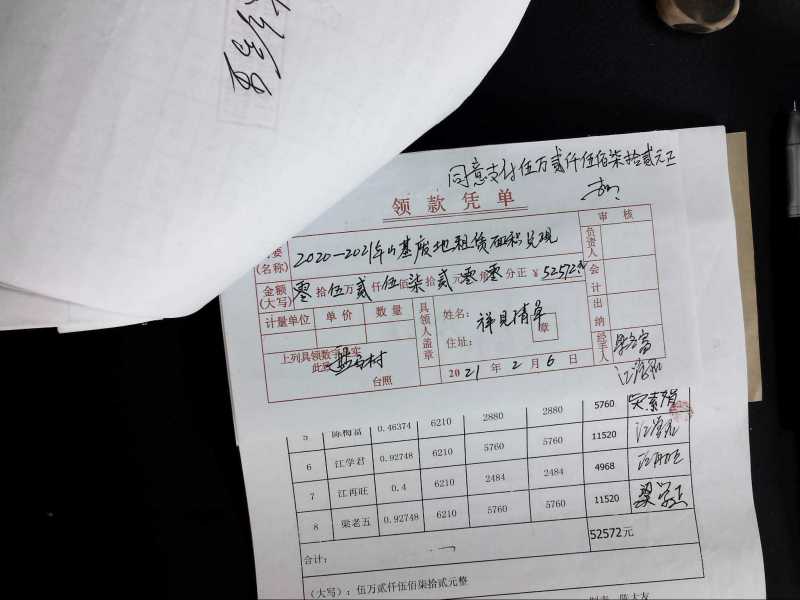 同意支付伍万贰仟伍佰柒拾贰元正
领款凭单
要 (名称) 2020-2021年 基 地租赁面积兑现 审核
负责人
金额(大写) 零拾伍万贰仟伍佰柒拾贰元零角零分正 ¥52572.00
会计
计量单位 单价 数量 具领人盖章 姓名: 详见清单 章 出纳
住址:
上列具领数字 实 经手人
此 村 台照 2021年2月6日
5 陈梅富 0.46374 6210 2880 2880 5760
6 江学君 0.92748 6210 5760 5760 11520
7 江再旺 0.4 6210 2484 2484 4968 江再旺
8 梁老五 0.92748 6210 5760 5760 11520
合计: 52572元
(大写): 伍万贰仟伍佰柒拾贰元整
制表 陈大友